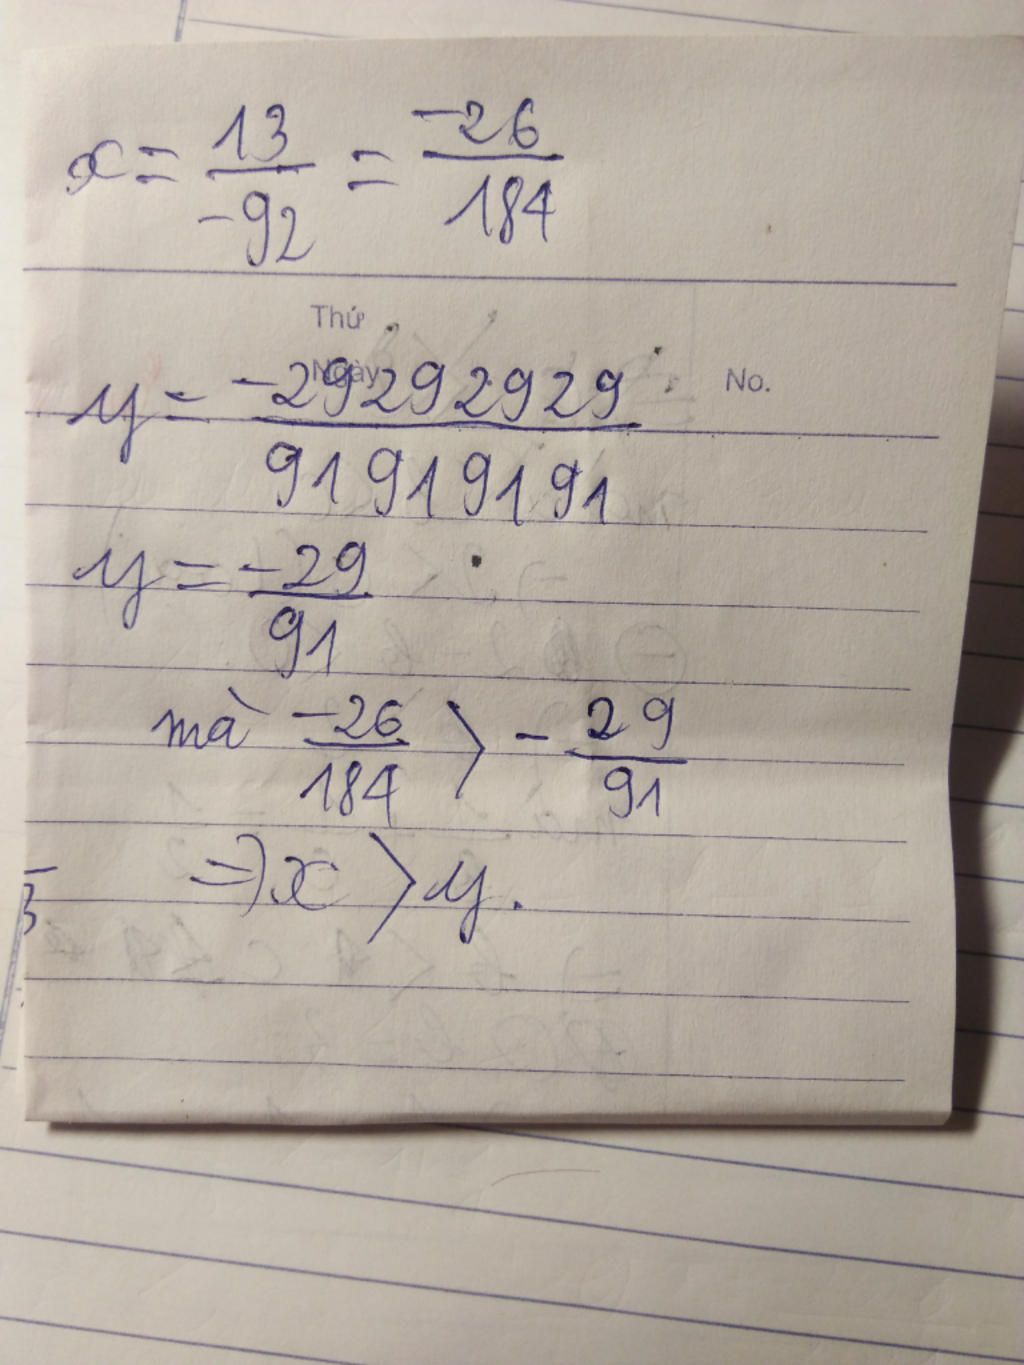 x = 13/-92 = -26/184
Thứ
Ngày
No.
y = -29292929/91919191
y = -29/91
mà -26/184 > -29/91
=> x > y.